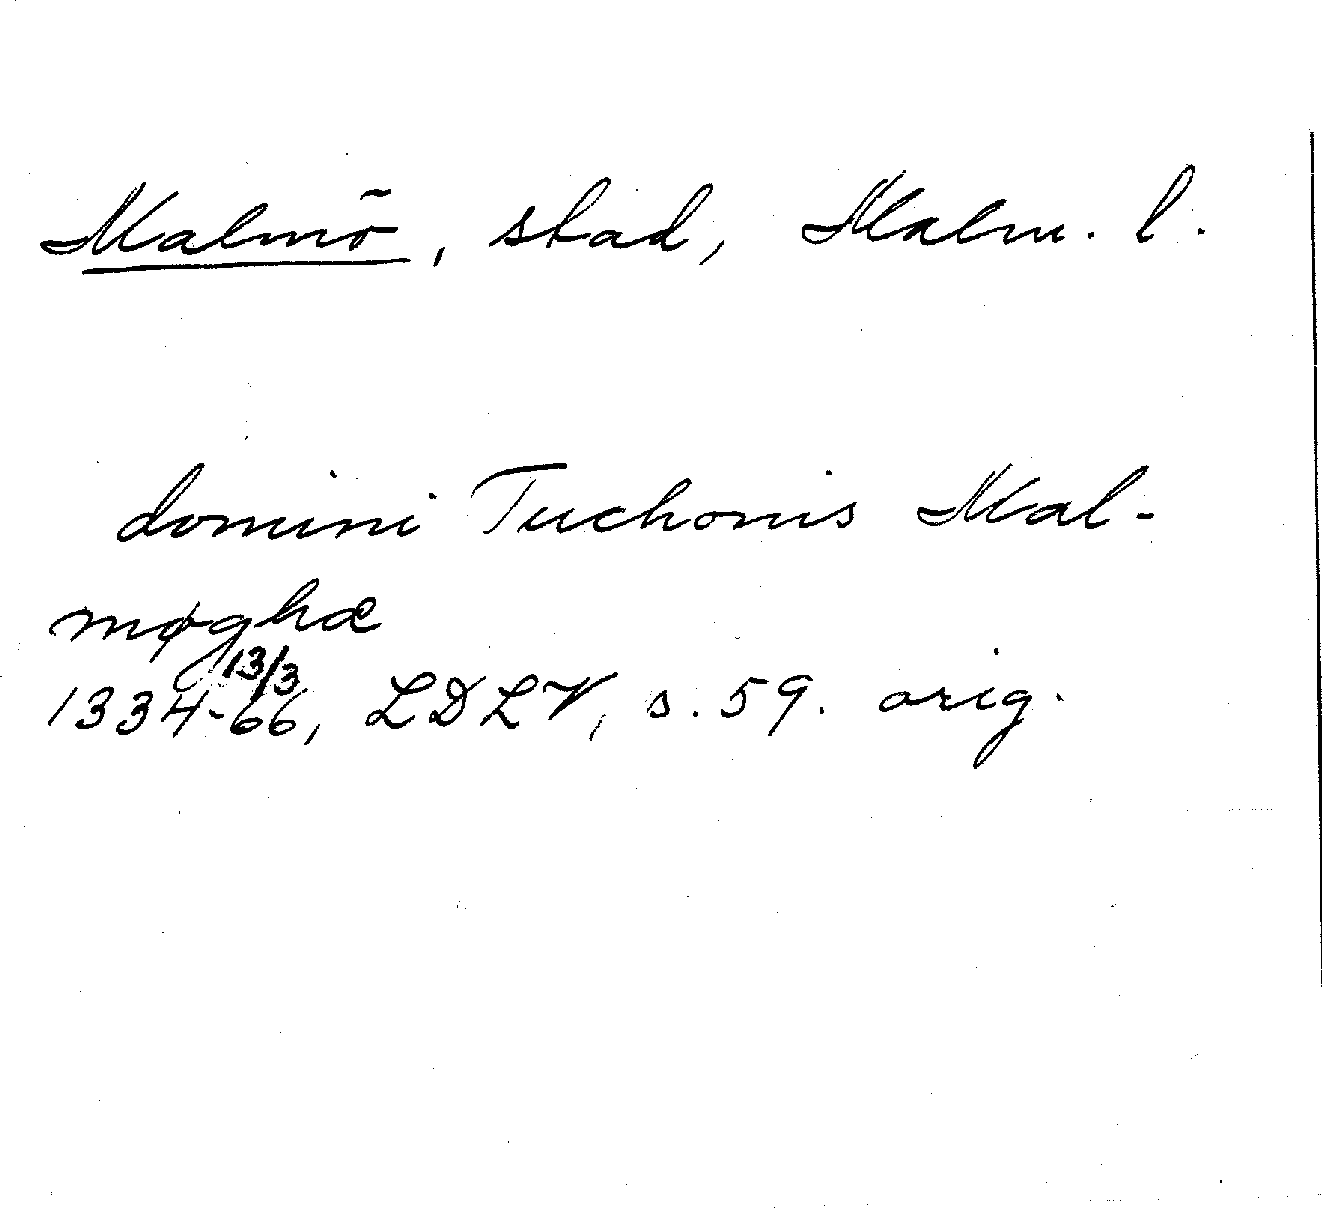 Malmö, stad, Malm. l.
domini Tuchonis Mal-
møghæ
13/3
1334-66, LDLV, s. 59. orig.